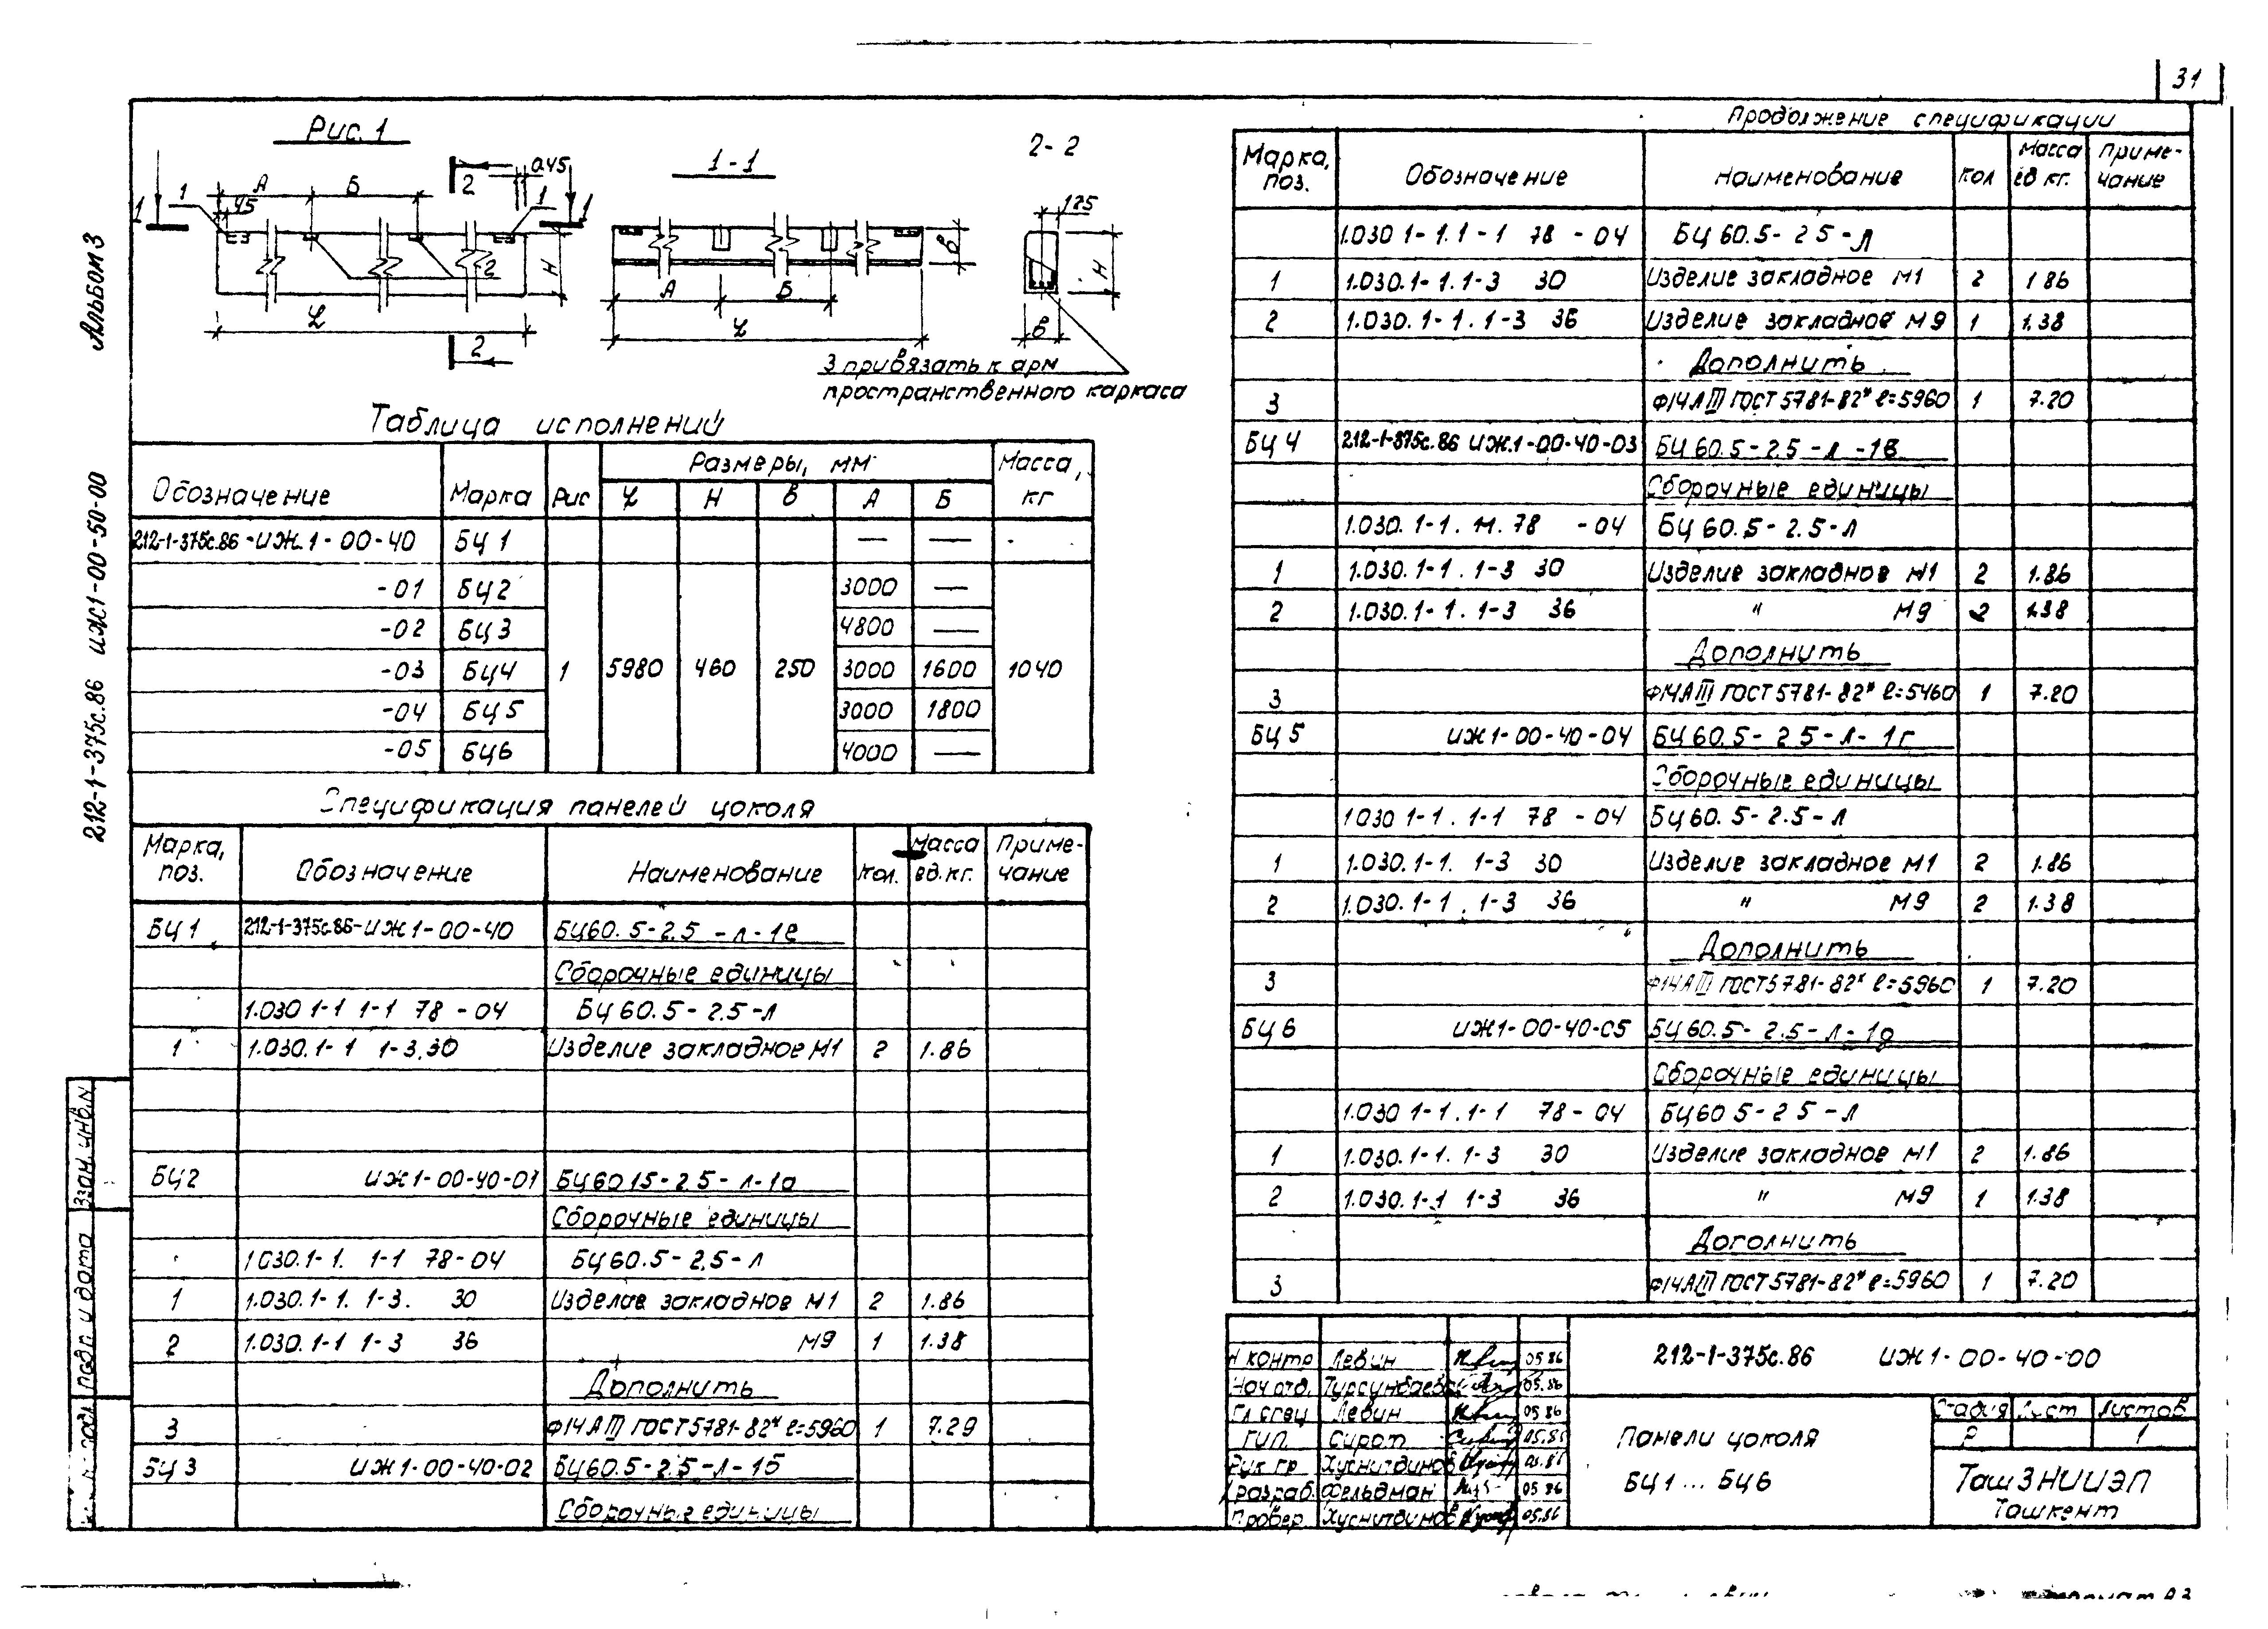 31
Альбом 3
212-1-375с.86 ИЖ1-00-50-00
Рис. 1
1-1
2-2
А Б 2 0.45
1 1 45 1 1
2
Н
L
2
А Б
L
В
125
Н
В
3 привязать к арм
пространственного каркаса
Таблица исполнений
Обозначение Марка Рис Размеры, мм Масса, кг
L Н В А Б
212-1-375с.86-ИЖ.1-00-40 БЦ1 — —
-01 БЦ2 3000 —
-02 БЦ3 4800 —
-03 БЦ4 1 5980 460 250 3000 1600 1040
-04 БЦ5 3000 1800
-05 БЦ6 4000 —
Спецификация панелей цоколя
Марка, поз. Обозначение Наименование Кол. Масса ед.кг. Приме-чание
БЦ1 212-1-375с.86-ИЖ1-00-40 БЦ60.5-2.5-Л-1е
Сборочные единицы
1.030 1-1 1-1 78-04 БЦ60.5-2.5-Л
1 1.030.1-1 1-3.30 Изделие закладное М1 2 1.86
БЦ2 ИЖ1-00-40-01 БЦ60 15-2.5-Л-1а
Сборочные единицы
1030.1-1. 1-1 78-04 БЦ60.5-2.5-Л
1 1.030.1-1. 1-3. 30 Изделие закладное М1 2 1.86
2 1.030.1-1 1-3 36 М9 1 1.38
Дополнить
3 Ф14АIII ГОСТ5781-82* ℓ=5960 1 7.29
БЦ3 ИЖ1-00-40-02 БЦ60.5-2.5-Л-1б
Сборочные единицы
Продолжение спецификации
Марка, поз. Обозначение Наименование Кол Масса ед кг. Приме-чание
1.030 1-1.1-1 78-04 БЦ60.5-2 5-Л
1 1.030.1-1.1-3 30 Изделие закладное М1 2 1 86
2 1.030.1-1.1-3 36 Изделие закладное М9 1 1.38
Дополнить
3 Ф14АIII ГОСТ5781-82* ℓ=5960 1 7.20
БЦ4 212-1-375с.86 ИЖ.1-00-40-03 БЦ60.5-2.5-Л-1в
Сборочные единицы
1.030.1-1.11.78 -04 БЦ60.5-2.5-Л
1 1.030.1-1.1-3 30 Изделие закладное М1 2 1.86
2 1.030.1-1.1-3 36 " М9 2 1.38
Дополнить
3 Ф14АIII ГОСТ5781-82* ℓ=5460 1 7.20
БЦ5 ИЖ1-00-40-04 БЦ60.5-2 5-Л-1г
Сборочные единицы
1030 1-1.1-1 78-04 БЦ60.5-2.5-Л
1 1.030.1-1. 1-3 30 Изделие закладное М1 2 1.86
2 1.030.1-1.1-3 36 " М9 2 1.38
Дополнить
3 Ф14АIII ГОСТ5781-82* ℓ=5960 1 7.20
БЦ6 ИЖ1-00-40-05 БЦ60.5-2.5-Л-1д
Сборочные единицы
1.030 1-1.1-1 78-04 БЦ60 5-2 5-Л
1 1.030.1-1. 1-3 30 Изделие закладное М1 2 1.86
2 1.030.1-1 1-3 36 " М9 1 1.38
Дополнить
3 Ф14АIII ГОСТ5781-82* ℓ=5960 1 7.20
Взам. инв.N
Подп. и дата
Н контр Левин 05.86
Нач отд. Турсунбаев 05.86
Гл спец Левин 05 86
ГИП Сирот 05.86
Рук гр Хуснитдинов 05.86
Разраб. Фельдман 05 86
Провер. Хуснитдинов 05.86
212-1-375с.86 ИЖ1-00-40-00
Панели цоколя
БЦ1 ... БЦ6
Стадия Лист Листов
Р 1
ТашЗНИИЭП
Ташкент